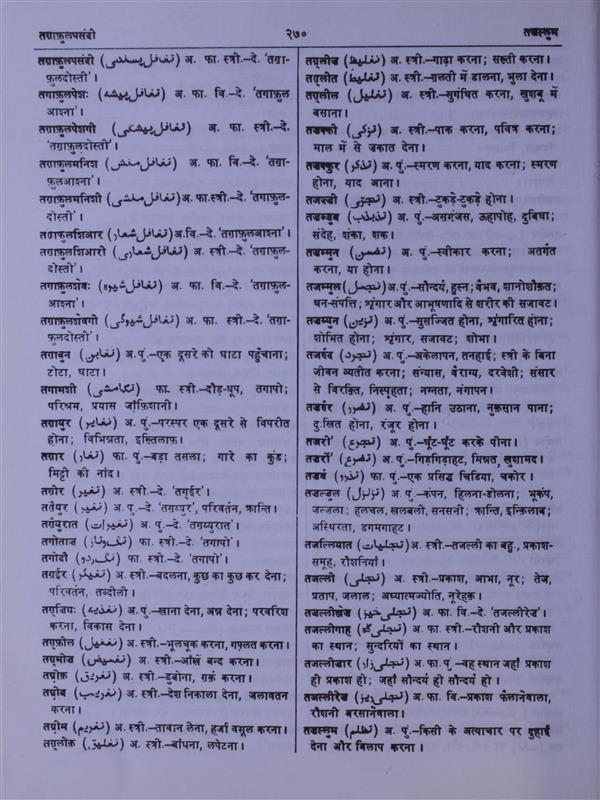 तग़ाफ़ुलपसंदी
२७०
तज़ल्लुम
तग़ाफ़ुलपसंदी (تغافل پسندی) अ. फा. स्त्री.–दे. 'तग़ा-
फ़ुलदोस्ती'।
तग़ाफ़ुलपेशः (تغافل پیشہ) अ. फा. वि.–दे. 'तग़ाफ़ुल
आश्ना'।
तग़ाफ़ुलपेशगी (تغافل پیشگی) अ. फा. स्त्री.–दे.
'तग़ाफ़ुलदोस्ती'।
तग़ाफ़ुलमनिश (تغافل منش) अ. फा. वि.–दे. 'तग़ा-
फ़ुलआश्ना'।
तग़ाफ़ुलमनिशी (تغافل منشی) अ. फा.स्त्री.–दे. 'तग़ाफ़ुल-
दोस्ती'।
तग़ाफ़ुलशिआर (تغافل شعار) अ.वि.–दे. 'तग़ाफ़ुलआश्ना'।
तग़ाफ़ुलशिआरी (تغافل شعاری) अ. स्त्री.–दे. 'तग़ाफ़ुल-
दोस्ती'।
तग़ाफ़ुलशेवः (تغافل شیوہ) अ. फा. वि.–दे. 'तग़ाफ़ुल-
आश्ना'।
तग़ाफ़ुलशेवगी (تغافل شیوگی) अ. फा. स्त्री.–दे. 'तग़ा-
फ़ुलदोस्ती'।
तग़ाबुन (تغابن) अ. पुं.–एक दूसरे को घाटा पहुँचाना;
टोटा, घाटा।
तगामशी (تگامشی) फा. स्त्री.–दौड़-धूप, तगापो;
परिश्रम, प्रयास जाँफ़िशानी।
तग़ायुर (تغایر) अ. पुं.–परस्पर एक दूसरे से विपरीत
होना; विभिन्नता, इख़्तिलाफ़।
तग़ार (تغار) फा. पुं.–बड़ा तसला; गारे का कुंड;
मिट्टी की नांद।
तग़ीर (تغیر) अ. स्त्री.–दे. 'तग़्ईर'।
तग़ैयुर (تغیر) अ. पु.–दे. 'तग़य्युर', परिवर्तन, क्रान्ति।
तग़ैयुरात (تغیرات) अ. पुं.–दे. 'तग़य्युरात'।
तगोताज़ (تگ و تاز) फा. स्त्री.–दे. 'तगापो'।
तगोदौ (تگ و دو) फा. स्त्री.–दे. 'तगापो'।
तग़्ईर (تغییر) अ. स्त्री.–बदलना, कुछ का कुछ कर देना;
परिवर्तन, तब्दीली।
तग़्ज़ियः (تغذیہ) अ. पुं.–खाना देना, अन्न देना; परवरिश
करना, विकास देना।
तग़्फ़ील (تغفیل) अ. स्त्री.–भूलचूक करना, ग़फ़्लत करना।
तग़्मीज़ (تغمیض) अ. स्त्री.–आँखें बन्द करना।
तग़्रीक़ (تغریق) अ. स्त्री.–डुबोना, ग़र्क़ करना।
तग़्रीब (تغریب) अ. स्त्री.–देश निकाला देना, जलावतन
करना।
तग़्रीम (تغریم) अ. स्त्री.–तावान लेना, हर्जा वसूल करना।
तग़्लीक़ (تغلیق) अ. स्त्री.–बाँधना, लपेटना।
तग़्लीज़ (تغلیظ) अ. स्त्री.–गाढ़ा करना; सख़्ती करना।
तग़्लीत (تغلیط) अ. स्त्री.–ग़लती में डालना, भुला देना।
तग़्लील (تغلیل) अ. स्त्री.–सुगंधित करना, ख़ुशबू में
बसाना।
तज़क्की (تزکی) अ. स्त्री.–पाक करना, पवित्र करना;
माल में से ज़कात देना।
तज़क्कुर (تذکر) अ. पुं.–स्मरण करना, याद करना; स्मरण
होना, याद आना।
तजज़्ज़ी (تجزی) अ. स्त्री.–टुकड़े-टुकड़े होना।
तज़ब्ज़ुब (تذبذب) अ. पुं.–असमंजस, ऊहापोह, दुबिधा;
संदेह, शंका, शक।
तज़म्मुन (تضمن) अ. पुं.–स्वीकार करना; अतर्गत
करना, या होना।
तजम्मुल (تجمل) अ. पुं.–सौन्दर्य, हुस्न; वैभव, शानोशौकत;
धन-संपत्ति; श्रृंगार और आभूषणादि से शरीर की सजावट।
तज़य्युन (تزین) अ. पुं.–सुसज्जित होना, श्रृंगारित होना;
शोभित होना; श्रृंगार, सजावट; शोभा।
तजर्रुद (تجرد) अ. पुं.–अकेलापन, तनहाई; स्त्री के बिना
जीवन व्यतीत करना; संन्यास, वैराग्य, दरवेशी; संसार
से विरक्ति, निस्पृहता; नग्नता, नंगापन।
तज़र्रुर (تضرر) अ. पुं.–हानि उठाना, नुक़सान पाना;
दुःखित होना, रंजूर होना।
तजर्रो' (تجرع) अ. पुं.–घूँट-घूँट करके पीना।
तज़र्रो' (تضرع) अ. पुं.–गिड़गिड़ाहट, मिन्नत, ख़ुशामद।
तज़र्व (تذرو) फा. पुं.–एक प्रसिद्ध चिड़िया, चकोर।
तज़ल्ज़ुल (تزلزل) अ. पुं.–कंपन, हिलना-डोलना; भूकंप,
ज़ल्ज़ला; हलचल, खलबली, सनसनी; क्रान्ति, इन्क़िलाब;
अस्थिरता, डगमगाहट।
तजल्लियात (تجلیات) अ. स्त्री.–तजल्ली का बहु., प्रकाश-
समूह, रौशनियाँ।
तजल्ली (تجلی) अ. स्त्री.–प्रकाश, आभा, नूर; तेज,
प्रताप, जलाल; अध्यात्मज्योति, नूरेहक़।
तजल्लीख़ेज़ (تجلی خیز) अ. फा. वि.–दे. 'तजल्लीरेज़'।
तजल्लीगाह (تجلی گاہ) अ. फा. स्त्री.–रौशनी और प्रकाश
का स्थान; सुन्दरियों का स्थान।
तजल्लीज़ार (تجلی زار) अ. फा. पुं.–वह स्थान जहाँ प्रकाश
ही प्रकाश हो; जहाँ सौन्दर्य ही सौन्दर्य हो।
तजल्लीरेज़ (تجلی ریز) अ. फा. वि.–प्रकाश फैलानेवाला,
रौशनी बरसानेवाला।
तज़ल्लुम (تظلم) अ. पुं.–किसी के अत्याचार पर दुहाई
देना और विलाप करना।